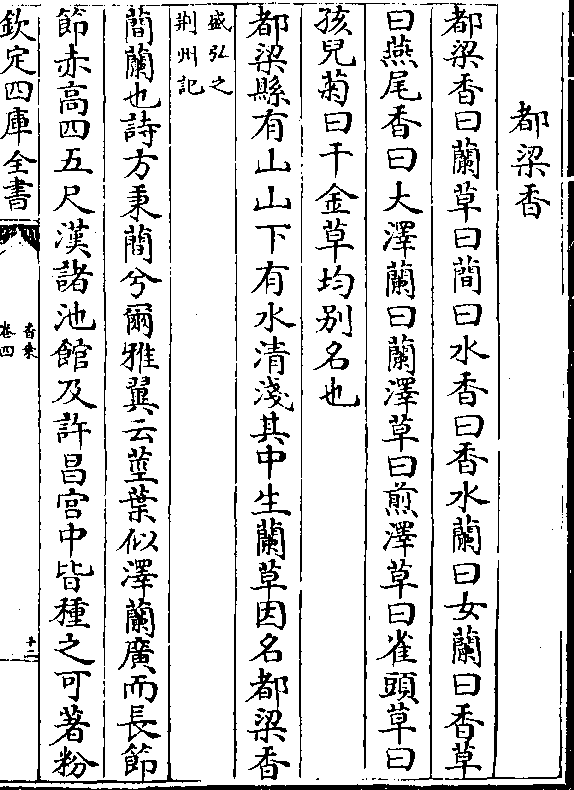 都梁香
都梁香曰蘭草曰蕳曰水香曰香水蘭曰女蘭曰香草
曰燕尾香曰大澤蘭曰蘭澤草曰煎澤草曰雀頭草曰
孩兒菊曰千金草均别名也
都梁縣有山山下有水清淺其中生蘭草因名都梁香
盛弘之
荆州記
蕳蘭也詩方秉蕳兮爾雅翼云莖葉似澤蘭廣而長節
節赤高四五尺漢諸池館及許昌宫中皆種之可著粉
欽定四庫全書
香乗
卷四
十二